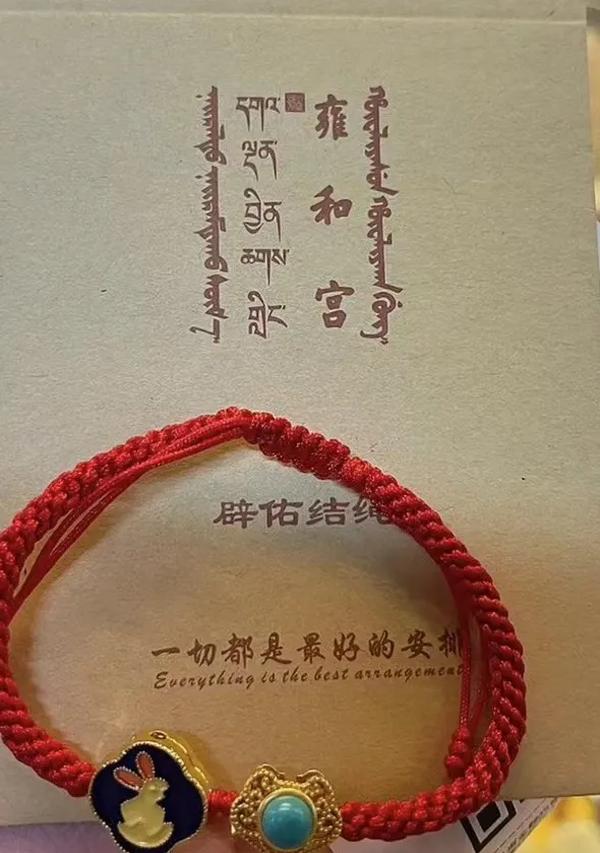 དགའ་
ལྡན་
བྱིན་
ཆགས་
གླིང་
雍和宫
辟佑结绳
一切都是最好的安排
Everything is the best arrangement